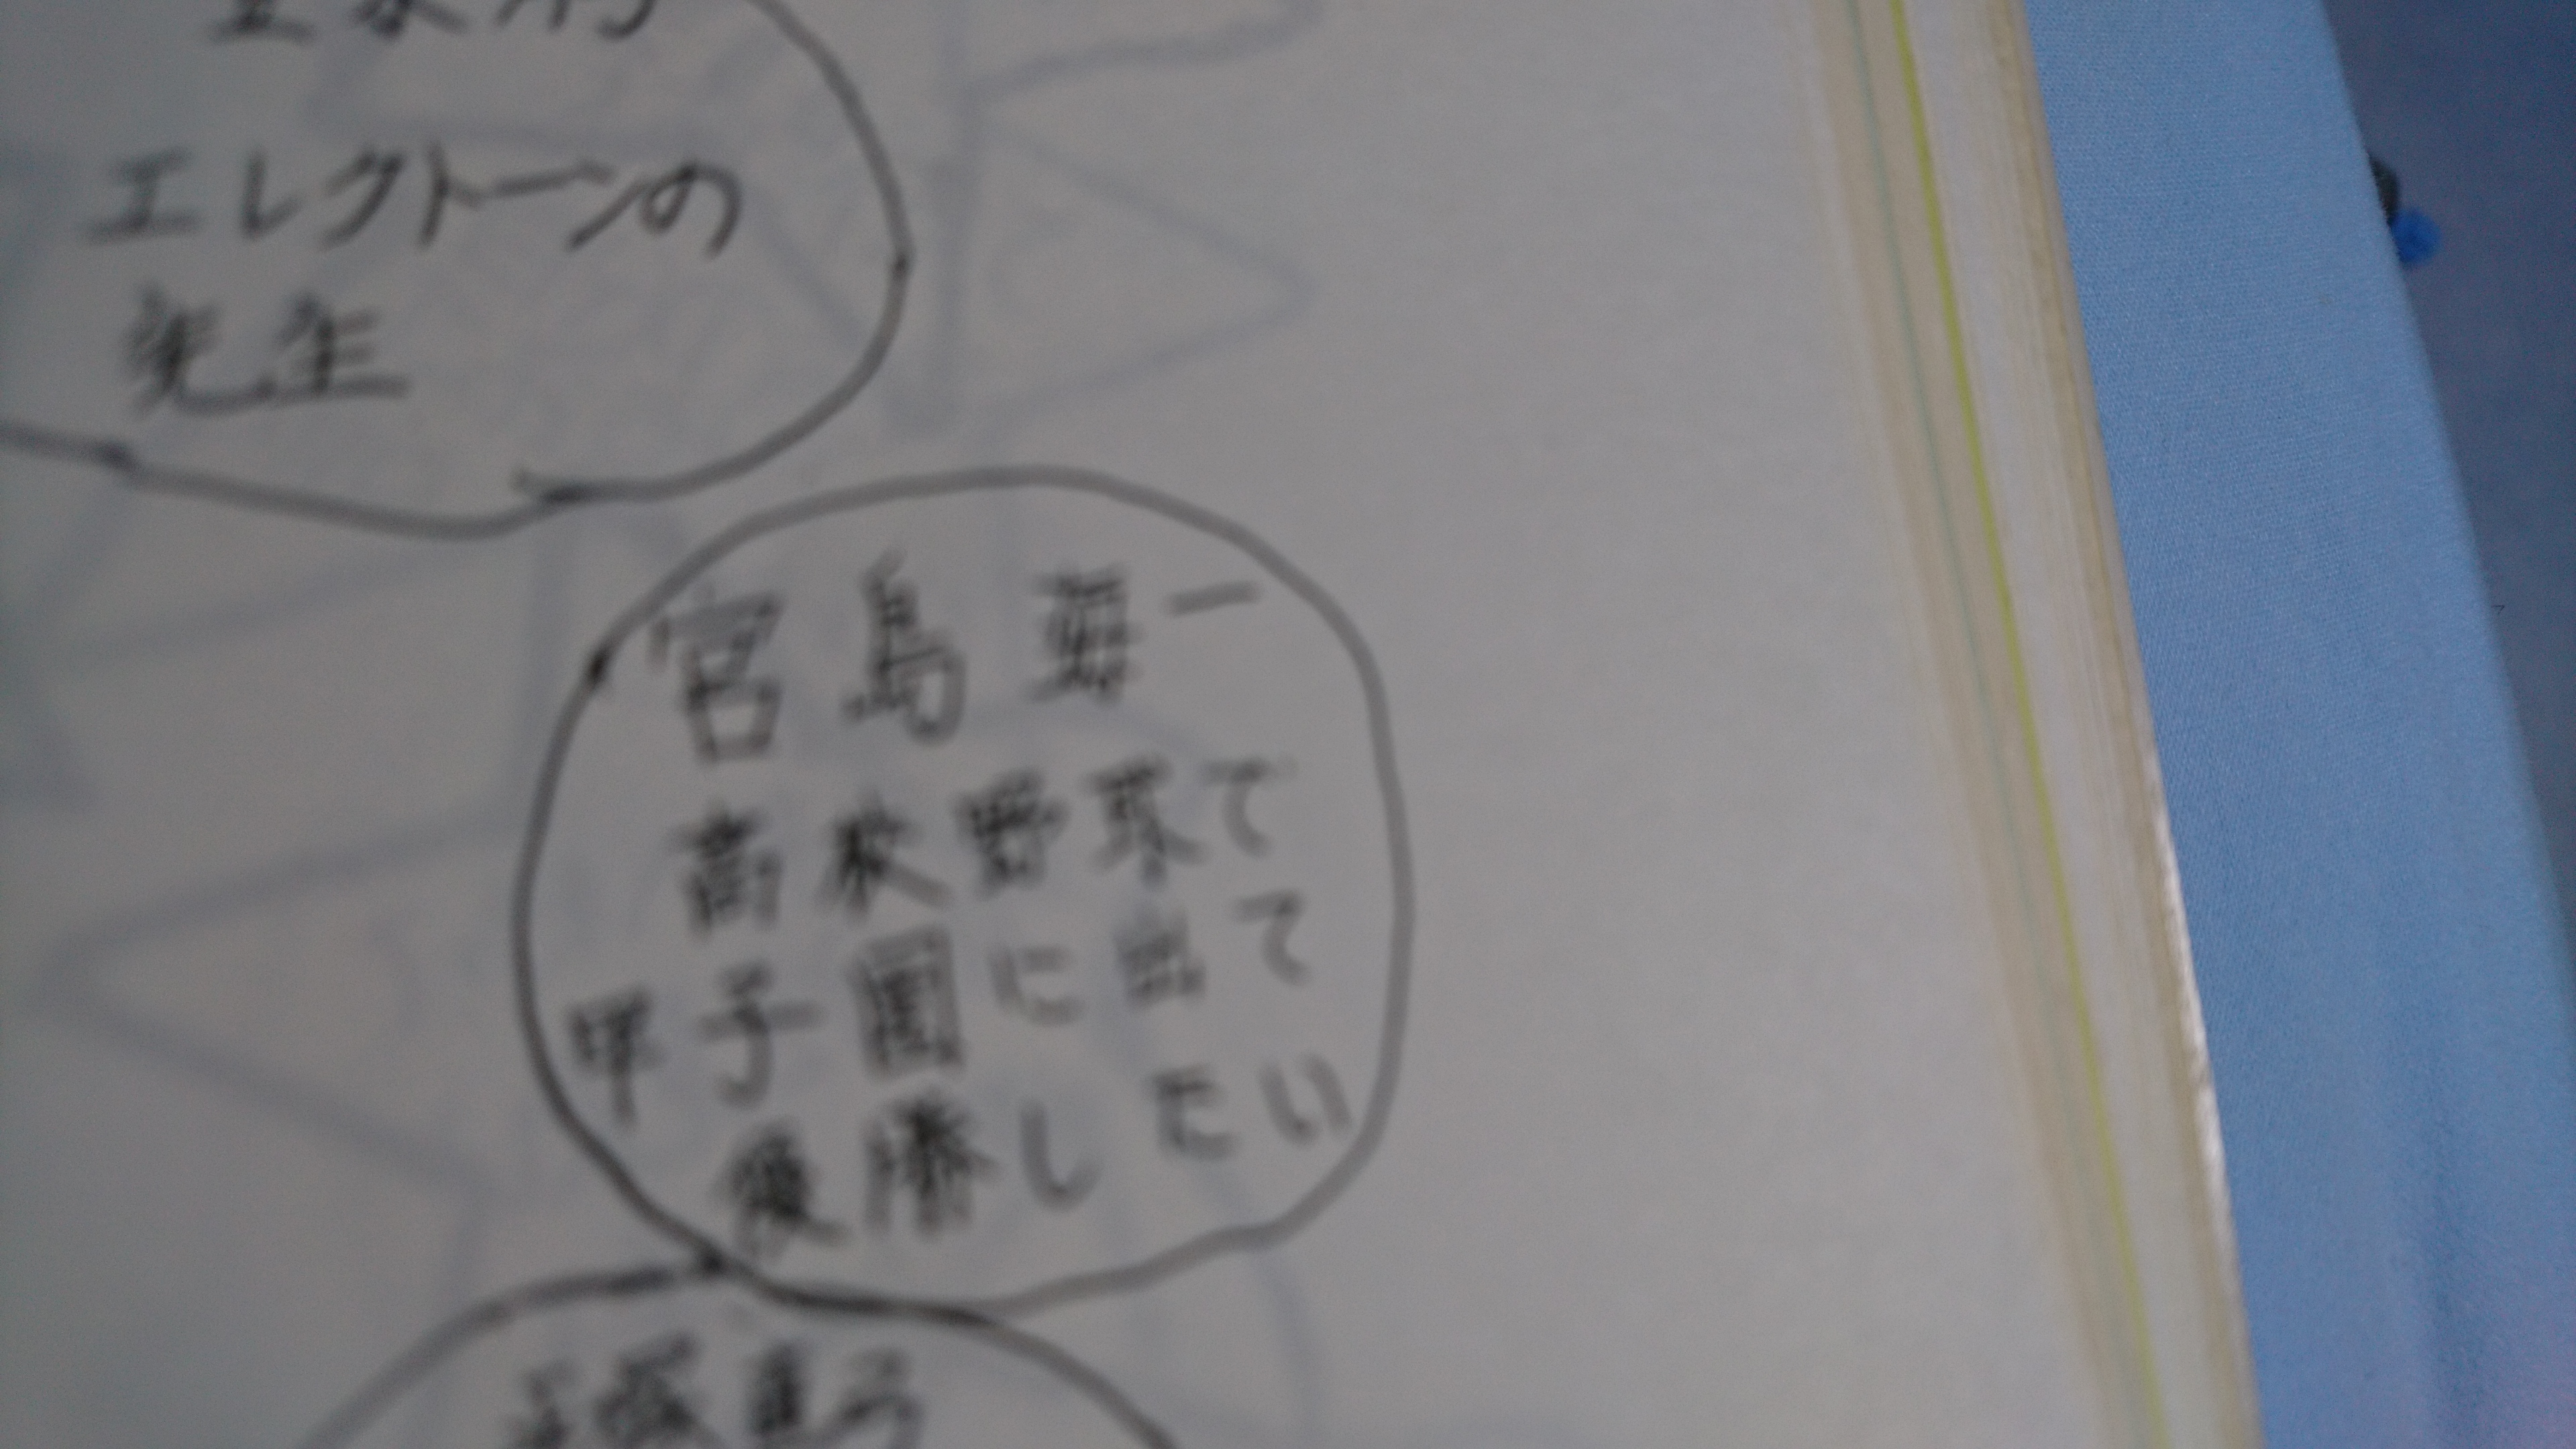 エレクトーンの
先生
宮島 一
高校野球で
甲子園に出て
優勝したい